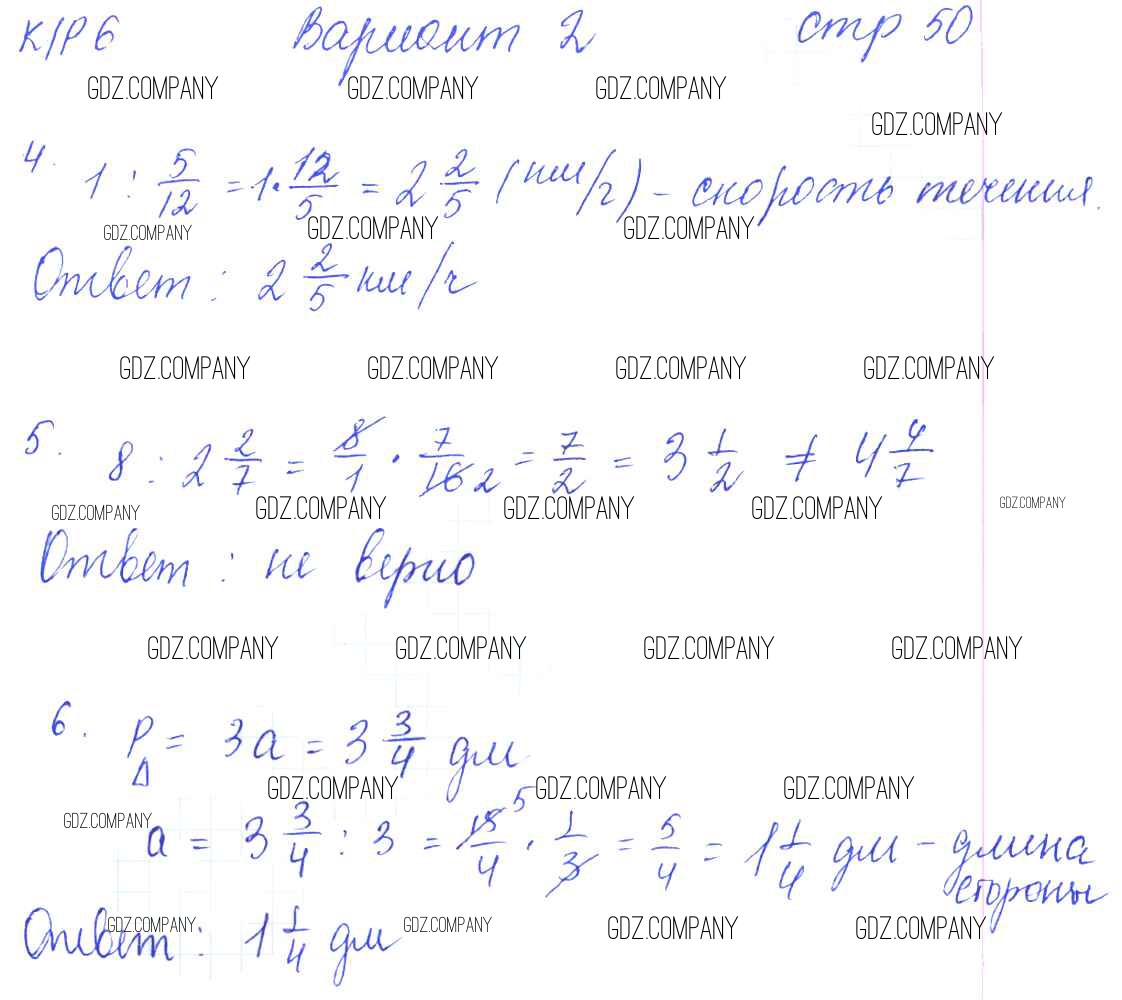 К/Р 6 Вариант 2 стр 50
GDZ.COMPANY GDZ.COMPANY GDZ.COMPANY GDZ.COMPANY
4. 1 : 5/12 = 1 · 12/5 = 2 2/5 (км/ч) - скорость течения.
GDZ.COMPANY GDZ.COMPANY GDZ.COMPANY
Ответ : 2 2/5 км/ч
GDZ.COMPANY GDZ.COMPANY GDZ.COMPANY GDZ.COMPANY
5. 8 : 2 2/7 = 8/1 · 7/16 2 = 7/2 = 3 1/2 ≠ 4 4/7
GDZ.COMPANY GDZ.COMPANY GDZ.COMPANY GDZ.COMPANY GDZ.COMPANY
Ответ : не верно
GDZ.COMPANY GDZ.COMPANY GDZ.COMPANY GDZ.COMPANY
6. P△ = 3a = 3 3/4 дм
GDZ.COMPANY GDZ.COMPANY GDZ.COMPANY
GDZ.COMPANY
a = 3 3/4 : 3 = 15 5/4 · 1/3 = 5/4 = 1 1/4 дм - длина
стороны
GDZ.COMPANY GDZ.COMPANY GDZ.COMPANY GDZ.COMPANY
Ответ : 1 1/4 дм